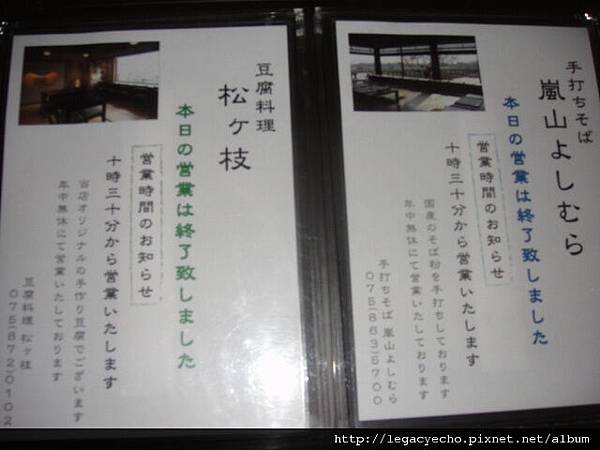 手打ちそば
嵐山よしむら
本日の営業は終了致しました
営業時間のお知らせ
十時三十分から営業いたします
国産のそば粉を手打ちしております
年中無休にて営業いたしております
手打ちそば 嵐山よしむら
075(863)5700
豆腐料理
松ヶ枝
本日の営業は終了致しました
営業時間のお知らせ
十時三十分から営業いたします
当店オリジナルの手作り豆腐でございます
年中無休にて営業いたしております
豆腐料理 松ヶ枝
075(872)0102
http://legacyecho.pixnet.net/album